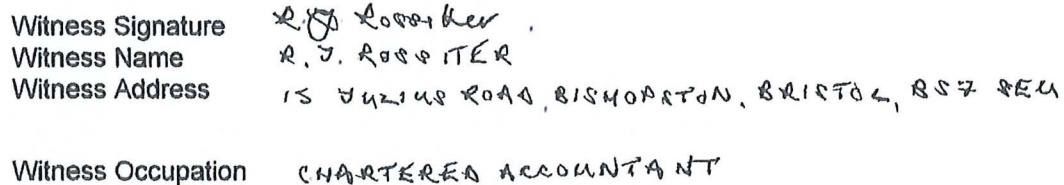 Witness Signature R.J. Rossiter
Witness Name R. J. ROSSITER
Witness Address 15 JULIUS ROAD, BISHOPSTON, BRISTOL, BS7 8EU
Witness Occupation CHARTERED ACCOUNTANT